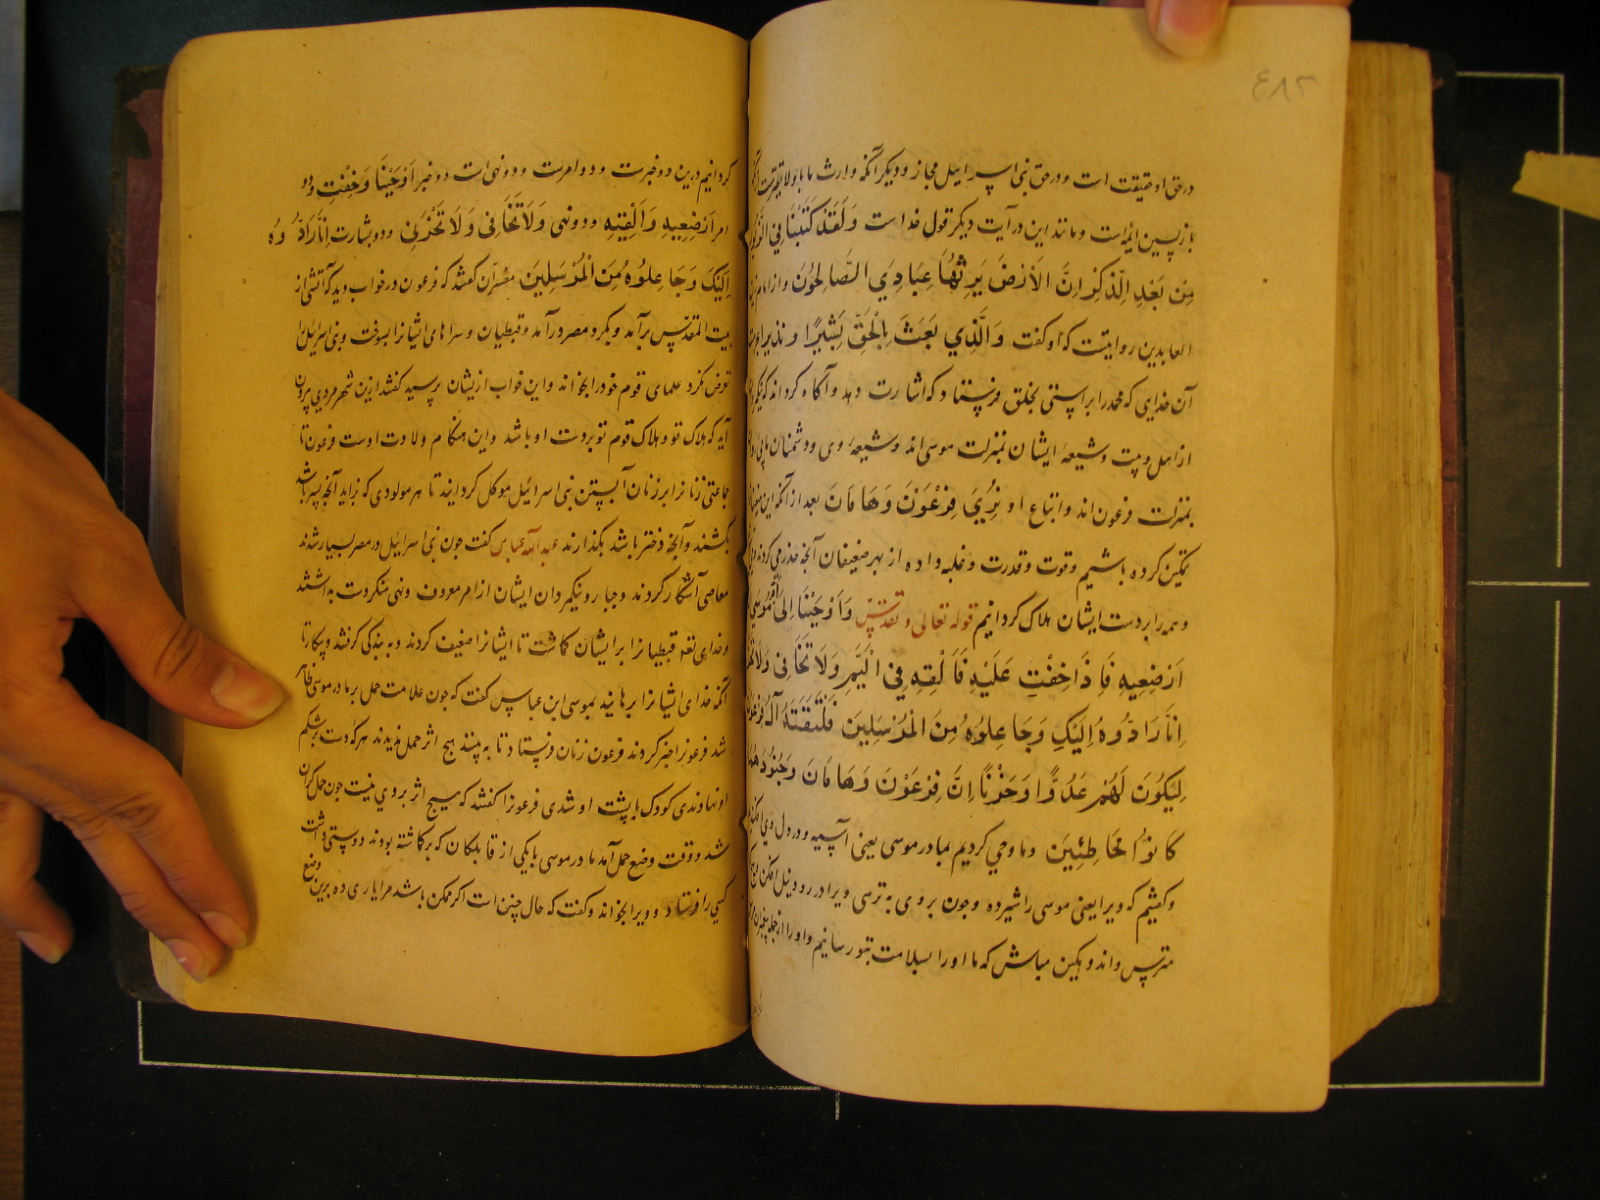 ٤٨٢
در حق او حقیقت است و در حق بنی اسرائیل مجاز و دیگر آنکه وارث ما
باز پسین ائمه است و مانند این در آیت دیگر قول خداست وَلَقَدْ كَتَبْنَا فِي الزَّبُورِ
مِنْ بَعْدِ الذِّكْرِ اِنَّ الاَرْضَ يَرِثُهَا عِبَادِيَ الصَّالِحُونَ و از امام زین
العابدین روایتست که او گفت وَالَّذِي بَعَثَ بِالْحَقِّ بَشِيرًا و نذیرا
آن خدایی که محمد را براستی بخلق فرستاد که اشارت دهد و آگاه کرداند که
از اهل وبیت و شیعهٔ ایشان بمنزلت موسی‌اند و شیعهٔ وی و دشمنان ما
بمنزلت فرعون‌اند و اتباع او نُرِيَ فِرْعَوْنَ وَهَامَانَ بعد از آنکه این
تمکین کرده باشیم و قوت و قدرت و غلبه داده از بهر ضعیفان آنچه حذر می کردند
و همه را بر دست ایشان هلاک کردانیم قوله تعالی و تقدس وَاَوْحَيْنَا اِلَى اُمِّ مُوسَى
اَرْضِعِيهِ فَاِذَا خِفْتِ عَلَيْهِ فَاَلْقِهِ فِي الْيَمِّ وَلَا تَخَافِي وَلَا تَحْزَنِي
اِنَّا رَادُّوهُ اِلَيْكِ وَجَاعِلُوهُ مِنَ الْمُرْسَلِينَ فَلْتَقَتَهُ آلُ فِرْعَوْنَ
لِيَكُونَ لَهُمْ عَدُوًّا وَحَزَنًا اِنَّ فِرْعَوْنَ وَهَامَانَ وَجُنُودَهُمَا
كَانُوا خَاطِئِينَ و ما وحی کردیم بمادر موسی یعنی آسیه و در دل وی
و کفتیم که ویرا یعنی موسی را شیر ده و چون بر وی به ترسی ویرا در رود نیل افکن و
مترس و اندوهکین مباش که ما او را بسلامت بتو رسانیم و او را از جمله پیغمبران
کردانیم درین دو خبرست و دو امرست و دو نهی است دو خبر اَوْحَيْنَا وَخِفْتِ و دو
امر اَرْضِعِيهِ وَاَلْقِيهِ و دو نهی وَلَا تَخَافِي وَلَا تَحْزَنِي و دو بشارت اِنَّا رَادُّوهُ
اِلَيْكِ وَجَاعِلُوهُ مِنَ الْمُرْسَلِينَ مفسران گفتند که فرعون در خواب دید که آتشی از
بیت المقدس برآمد و بکرد مصر درآمد و قبطیان و سراهای ایشانرا بسوخت و بنی اسرائیل را
تعرض نکرد علمای قوم خود را بخواند و این خواب ازیشان پرسید گفتند ازین شهر مردی بیرون
آید که هلاک تو و هلاک قوم تو بر دست او باشد و این هنکام ولادت اوست فرعون تا
جماعتی زنانرا بر زنان آبستن بنی اسرائیل موکل کردانیدند تا هر مولودی که بزاید آنچه پسر باشد
بکشند و آنچه دختر باشد بکذارند عبدالله عباس کفت چون بنی اسرائیل در مصر بسیار شدند
معاصی آشکار کردند و جبار و نیکمردان ایشان از امر معروف و نهی منکر دست بداشتند
و خدای تعه قبطیانرا بر ایشان کماشت تا ایشانرا ضعیف کردند و به بندکی کرفتند و
آنکه خدای ایشانرا برهانید بموسی ابن عباس کفت که چون علامت حمل بر مادر موسی ظاهر
شد فرعونرا خبر کردند فرعون زنان فرستاد تا به بینند هیچ اثر حمل ندیدند هر که دست بر شکم
او نهادندی کودک با پشت او شدی فرعونرا کفتند که هیچ اثر بر وی نیست چون حمل کران
شد و وقت وضع حمل آمد مادر موسی با یکی از قابلکان که بر کماشته بودند دوستی داشت
کسی را فرستاد و ویرا بخواند و کفت که حال چنین است اکر ممکن باشد مرا یاری ده برین وضع